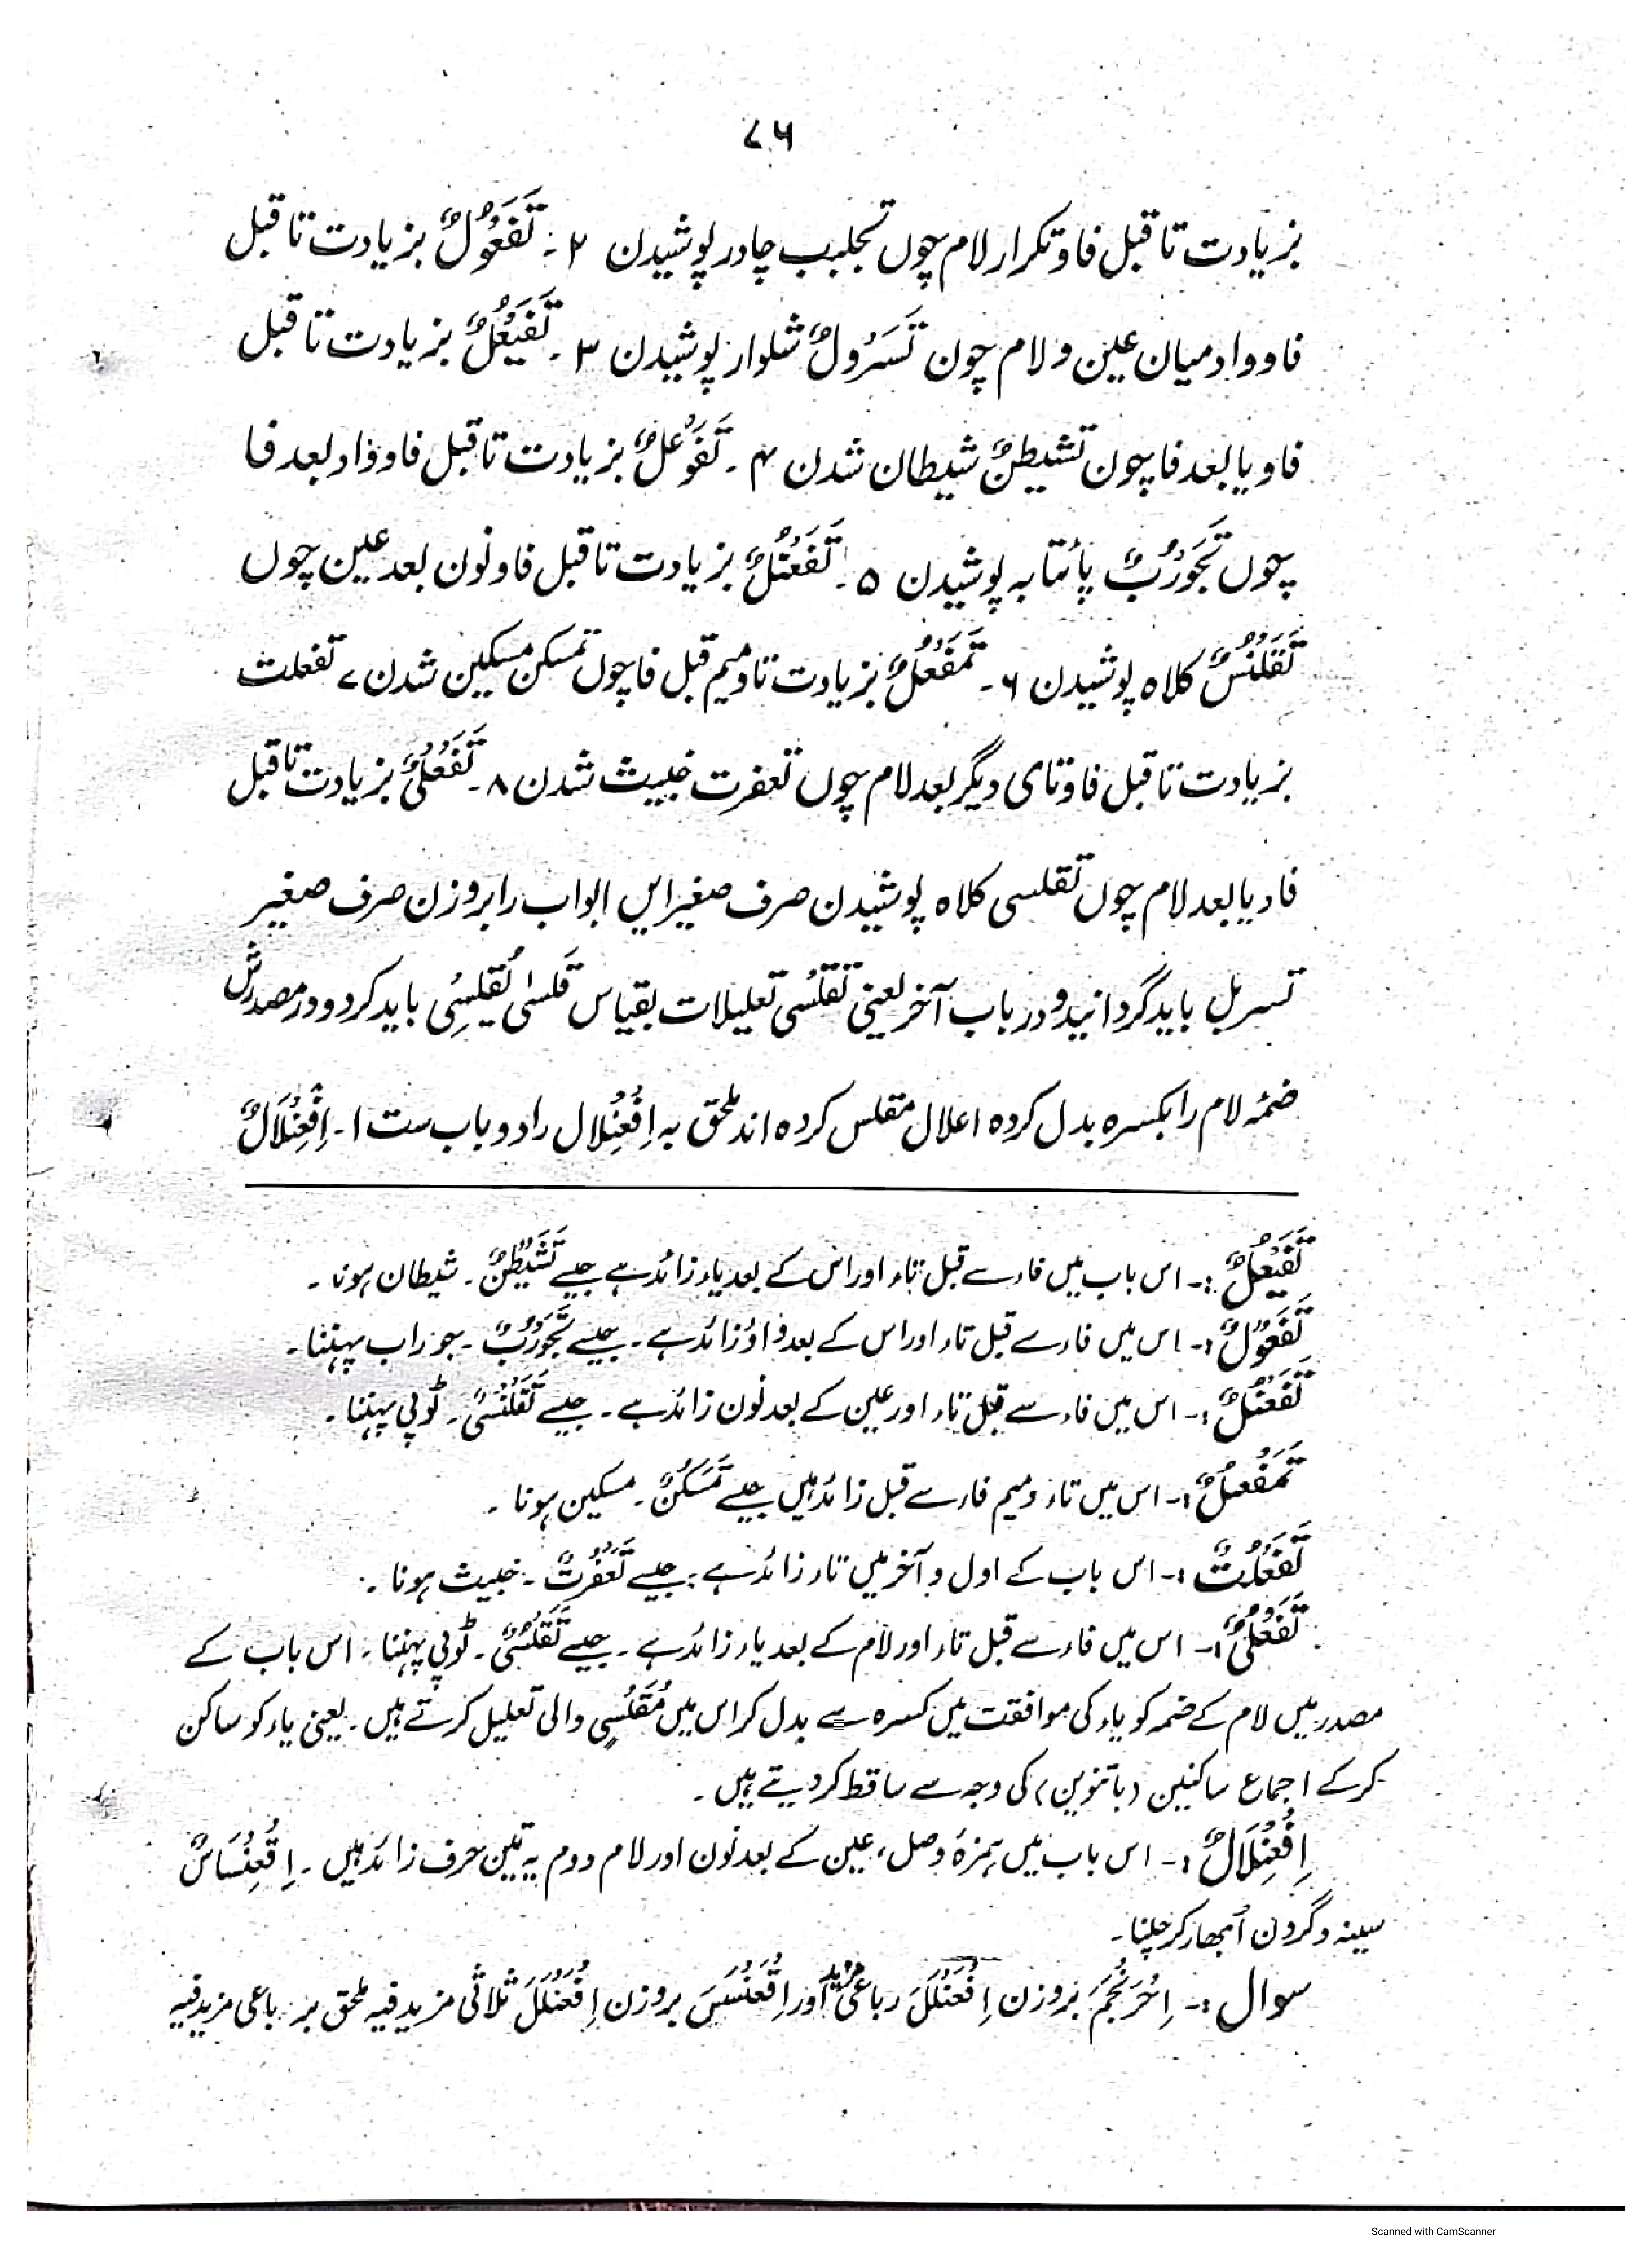 ۷۶
بزیادت تا قبل فا و تکرار لام چوں تجلبب چادر پوشیدن ۲ ـ تَفَعْوُلٌ بزیادت تا قبل
فا و واو میان عین و لام چون تَسَرْوُلٌ شلوار پوشیدن ۳ ـ تَفَیْعُلٌ بزیادت تا قبل
فا و یا بعد فا چون تشیطنٌ شیطان شدن ۴ ـ تَفَوْعُلٌ بزیادت تا قبل فا و واو بعد فا
چوں تَجَوْرُبٌ پائتابہ پوشیدن ۵ ـ تَفَعْنُلٌ بزیادت تا قبل فا و نون بعد عین چوں
تَقَلْنُسٌ کلاہ پوشیدن ۶ ـ تَمَفْعُلٌ بزیادت تا و میم قبل فا چوں تمسکن مسکین شدن ۷ تفعلت
بزیادت تا قبل فا و تای دیگر بعد لام چوں تعفرت خبیث شدن ۸ ـ تَفَعْلُیٌ بزیادت تا قبل
فا و یا بعد لام چوں تقلسی کلاہ پوشیدن صرف صغیر ایں ابواب را بر وزن صرف صغیر
تسربل باید گردانید و در باب آخر یعنی تَقَلْسُی تعلیلات بقیاس قَلسٰی یُقلسِی باید کرد و در مصدرش
ضمہ لام را بکسرہ بدل کردہ اعلال مقلس کردہ اند ملحق بہ اِفْعِنْلال را دو باب ست ۱ ـ اِفْعِنْلَالٌ
تَفَیْعُلٌ :ـ اس باب میں فاء سے قبل تاء اور اس کے بعد یاء زائد ہے جیسے تَشَیْطُنٌ ـ شیطان ہونا ـ
تَفَعْوُلٌ :ـ اس میں فاء سے قبل تاء اور اس کے بعد واؤ زائد ہے ـ جیسے تَجَوْرُبٌ ـ جوراب پہننا ـ
تَفَعْنُلٌ :ـ اس میں فاء سے قبل تاء اور عین کے بعد نون زائد ہے ـ جیسے تَقَلْنُسٌ ـ ٹوپی پہننا ـ
تَمَفْعُلٌ :ـ اس میں تاء و میم فاء سے قبل زائد ہیں جیسے تَمَسْکُنٌ ـ مسکین ہونا ـ
تَفَعْلُتٌ :ـ اس باب کے اول و آخر میں تاء زائد ہے : جیسے تَعَفْرُتٌ ـ خبیث ہونا ـ
تَفَعْلُیٌ :ـ اس میں فاء سے قبل تاء اور لام کے بعد یاء زائد ہے ـ جیسے تَقَلْسُیٌ ـ ٹوپی پہننا ـ اس باب کے
مصدر میں لام کے ضمہ کو یاء کی موافقت میں کسرہ سے بدل کر اس میں مُقَلْسِی والی تعلیل کرتے ہیں ـ یعنی یاء کو ساکن
کر کے اجماع ساکنین (با تنوین) کی وجہ سے ساقط کر دیتے ہیں ـ
اِفْعِنْلَالٌ :ـ اس باب میں ہمزۂ وصل، عین کے بعد نون اور لام دوم یہ تین حرف زائد ہیں ـ اِقْعِنْسَاسٌ
سینہ و گردن اُبھار کر چلنا ـ
سوال :ـ اِحْرَنْجَمَ بر وزن اِفْعَنْلَلَ رباعی مزید اور اِقْعَنْسَسَ بر وزن اِفْعَنْلَلَ ثلاثی مزید فیہ ملحق بر رباعی مزید فیہ
Scanned with CamScanner